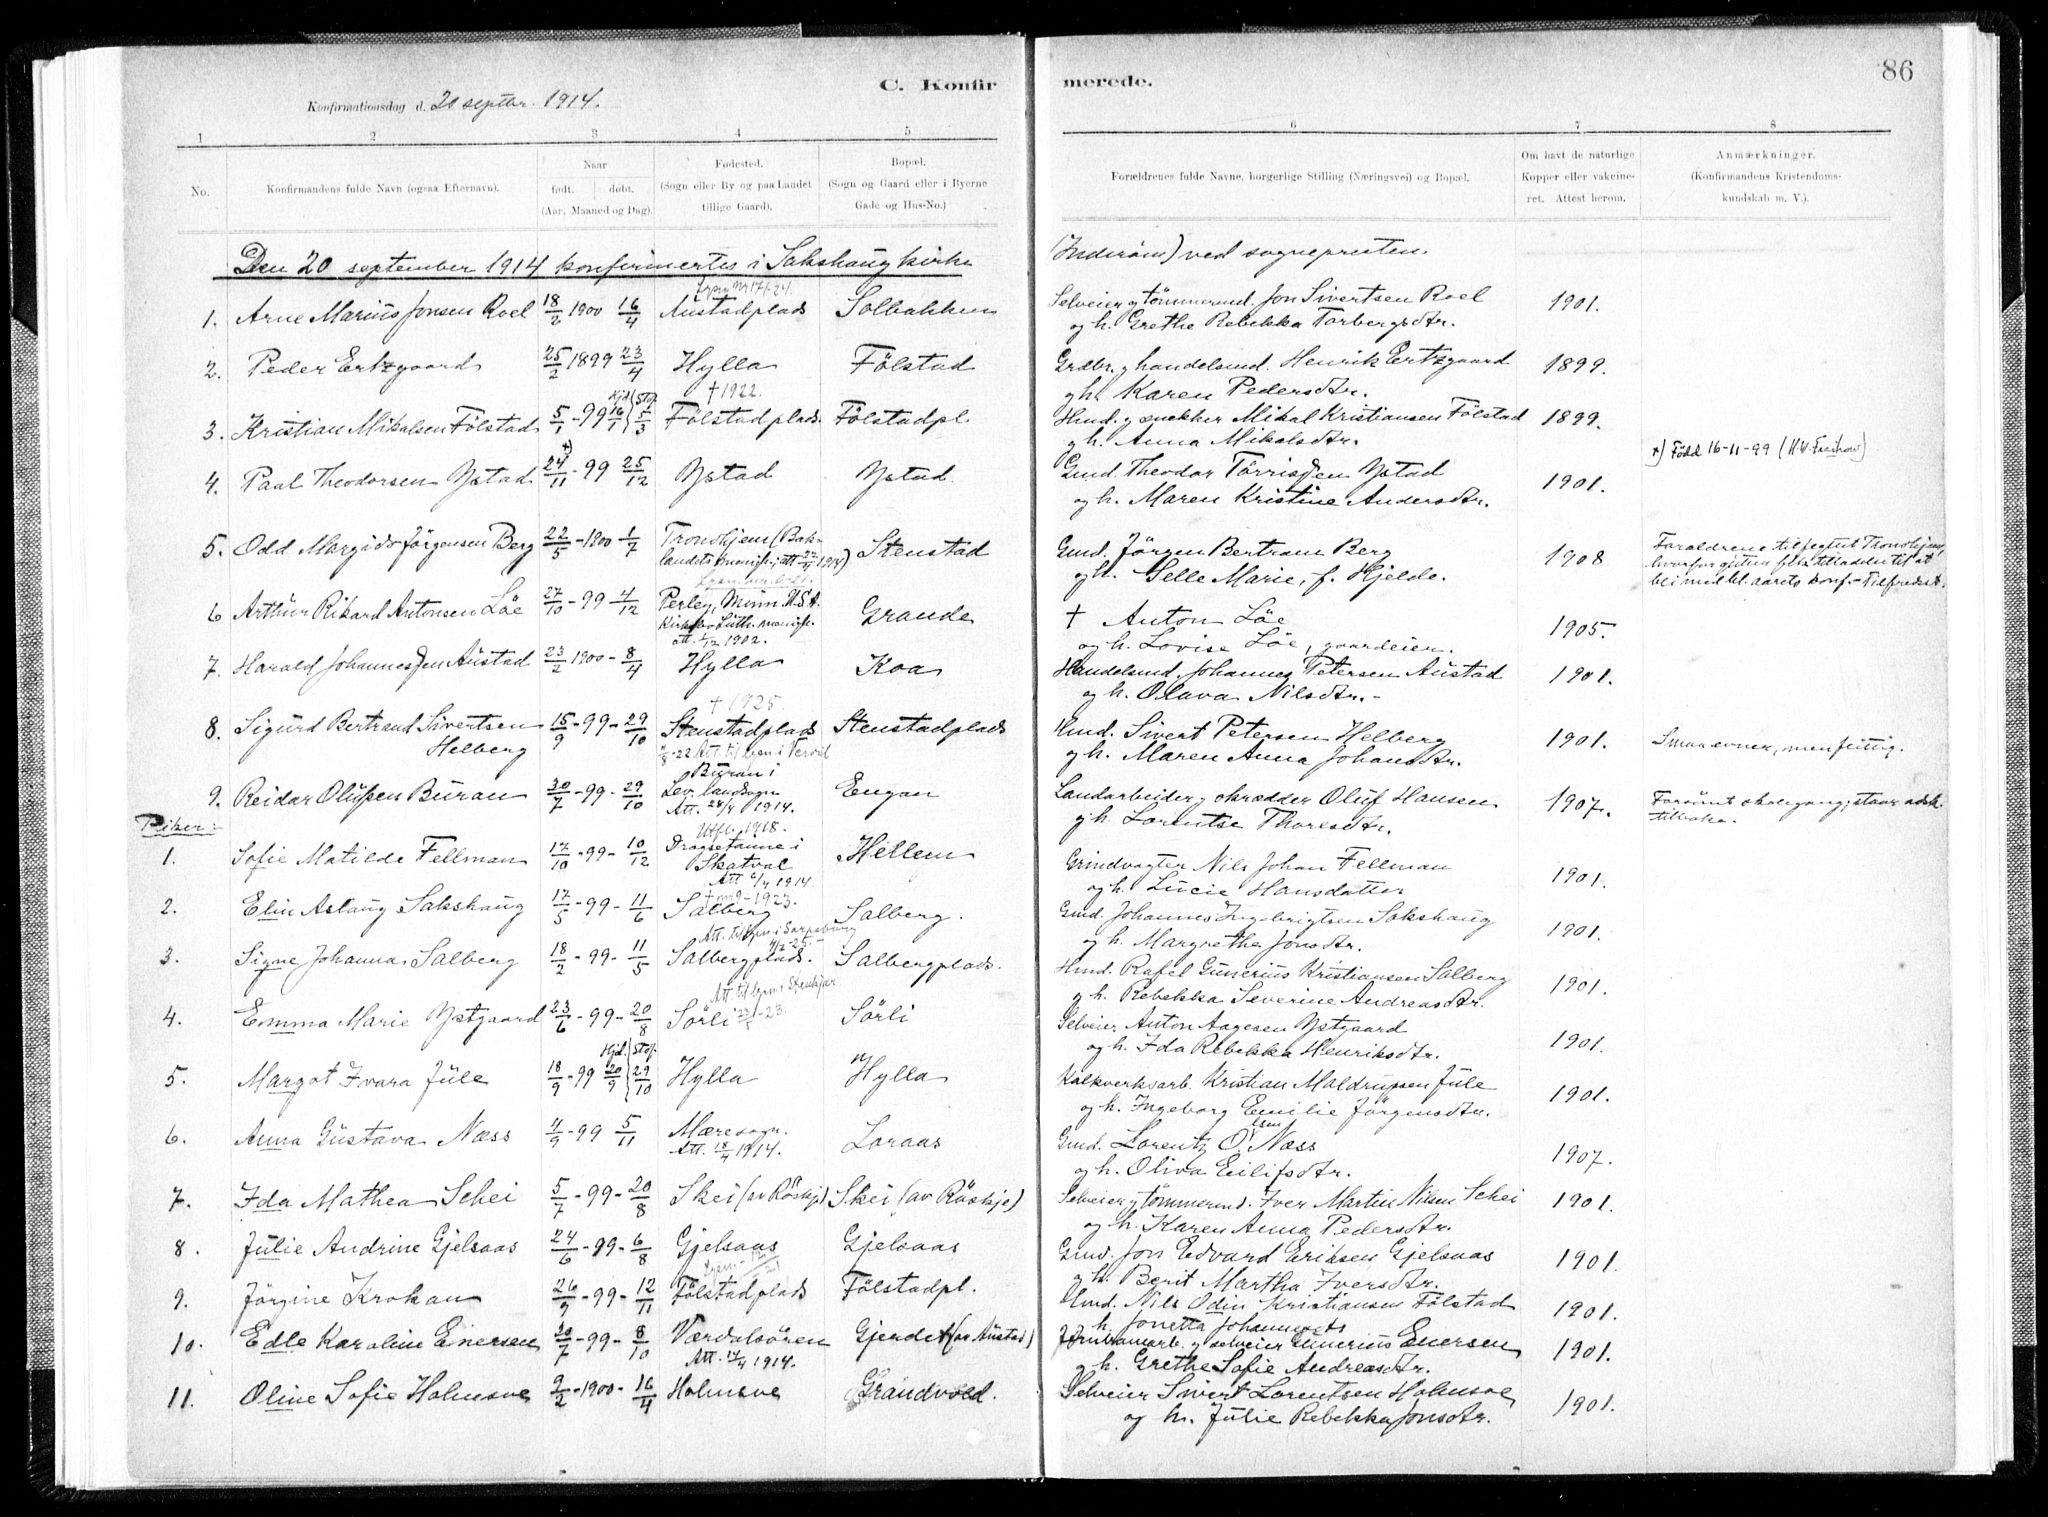 C. Konfirmerede.
86
Konfirmationsdag d. 20 septbr. 1914.
1 2 3 4 5 6 7 8
No.
Konfirmandens fulde Navn (ogsaa Efternavn).
Naar
født. døbt.
(Aar, Maaned og Dag).
Fødested.
(Sogn eller By og paa Landet
tillige Gaard).
Bopæl.
(Sogn og Gaard eller i Byerne
Gade og Hus-No.)
Forældrenes fulde Navne, borgerlige Stilling (Næringsvei) og Bopæl.
Om havt de naturlige
Kopper eller vakcine-
ret. Attest herom.
Anmærkninger.
(Konfirmandens Kristendoms-
kundskab m. V.).
Den 20 september 1914 konfirmertes i Sakshaug kirke (Inderøen) ved sognepresten.
1. Arne Marius Jonsen Roel 18/2 1900 16/4 Austadplads Solbakken Selveier og tømmermd. Jon Sivertsen Roel 1901.
og h. Grethe Rebekka Torbergsdtr.
2. Peder Ertzgaard 25/2 1899 23/4 Hylla Følstad Grdbr. og handelsmd. Henrik Ertzgaard 1899.
og h. Karen Pedersdtr.
† 1922.
3. Kristian Mikalsen Følstad 5/1 - 99 Hjd. 16/1 Stof. 5/3 Følstadplads. Følstadpl. Hmd. og snekker Mikal Kristiansen Følstad 1899.
og h. Anna Mikalsdtr.
4. Paal Theodorsen Ystad 24/11 x) - 99 25/12 Ystad Ystad Gmd. Theodor Tørrissen Ystad 1901. x) Född 16-11-99
og h. Maren Kristine Andersdtr.
5. Odd Margido Jørgensen Berg 22/5 - 1900 1/7 Trondhjem (Bak- Stenstad Gmd. Jørgen Bertram Berg 1908 Forældrene tilflyttet Trondhjem,
landets menigh.; att. 1914) og h. Selle Marie, f. Hjelde. bli med bl. aarets konf. - Tilfredsst.
6 Arthur Rikard Antonsen Løe 27/10 - 99 4/12 Perley, Minn. U.S.A. Grande † Anton Løe 1905.
Luth. menigh.
att. 1902. og h. Lovise Løe, gaardeier.
7. Harald Johannessen Austad 23/2 1900 - 8/4 Hylla Koa Handelsmd. Johannes Petersen Austad 1901.
og h. Olava Nilsdtr. -
† 1925.
8. Sigurd Bertrand Sivertsen 15/9 - 99 - 29/10 Stenstadplads Stenstadplads Hmd. Sivert Petersen Helberg 1901. Smaa evner, men flittig.
Helberg og h. Maren Anna Johansdtr.
9. Reidar Olufsen Buran 30/7 - 99 - 29/10 Buran i Engan Landarbeider og skrædder Oluf Hansen 1907. Forsømt skolegang; staar adsk.
Lev. landsogn
Att. 1914. og h. Lorentse Thoresdtr. tilbake.
Piker:
Utfl. 1918.
1. Sofie Matilde Fellman 17/10 - 99 - 10/12 Skatval Hellem Grindvogter Nils Johan Fellman 1901.
Att 1914. og h. Lucie Hansdatter
2. Elin Aslaug Sakshaug 17/5 - 99 - 11/6 Salberg Salberg. Gmd. Johannes Ingebrigtsen Sakshaug 1901.
og h. Margrethe Jonsdtr.
Att. til lysn i Sarpsborg
3. Signe Johanna Salberg 18/2 - 99 - 11/5 Salbergplads. Salbergplads. Hmd. Rafel Gunerius Kristiansen Salberg 1901.
og h. Rebekka Severine Andreasdtr.
Att. til lysn. i Stenkjær
4. Emma Marie Ystgaard 23/6 - 99 - 20/8 Sørli Sørli Selveier Anton Aagesen Ystgaard 1901.
og h. Ida Rebekka Henriksdtr.
5. Margot Ivara Jule 18/9 - 99 Hjd. 20/9 Stof. 29/10 Hylla Hylla Kalkverksarb. Kristian Maldrupsen Jule 1901.
og h. Ingeborg Emilie Jørgensdtr.
6. Anna Gustava Næss 4/9 - 99 5/11 Mære sogn. Loraas Gmd. Lorentz Olsen Næss 1907.
Att. 18/4 1914. og h. Oliva Eilifsdtr.
7. Ida Mathea Schei 5/7 - 99 - 20/8 Skei (av Røskje) Skei (av Røskje) Selveier og tømmermd. Iver Martin Nilsen Schei 1901.
og h. Karen Anna Pedersdtr.
8. Julie Andrine Gjelsaas 24/6 - 99 - 6/8 Gjelsaas Gjelsaas Gmd. Jon Edvard Eriksen Gjelsaas 1901.
og h. Berit Martha Iversdtr.
9. Jørgine Krokan 26/9 - 99 - 12/11 Følstadplads Følstadpl. Hmd. Nils Odin Kristiansen Følstad 1901.
h. Jonetta Johannesdtr.
10. Edle Karoline Enersen 30/7 - 99 - 8/10 Værdalsøren Gjerdet (av Austad) Jernbanearb. og selveier Gunerius Enersen 1901.
Att. 17/4 1914. og h. Grethe Sofie Andreasdtr.
11. Oline Sofie Holmsve 9/2 - 1900 - 16/4 Holmsve Grandvold. Selveier Sivert Lorentsen Holmsve 1901.
og h. Julie Rebekka Jonsdtr.